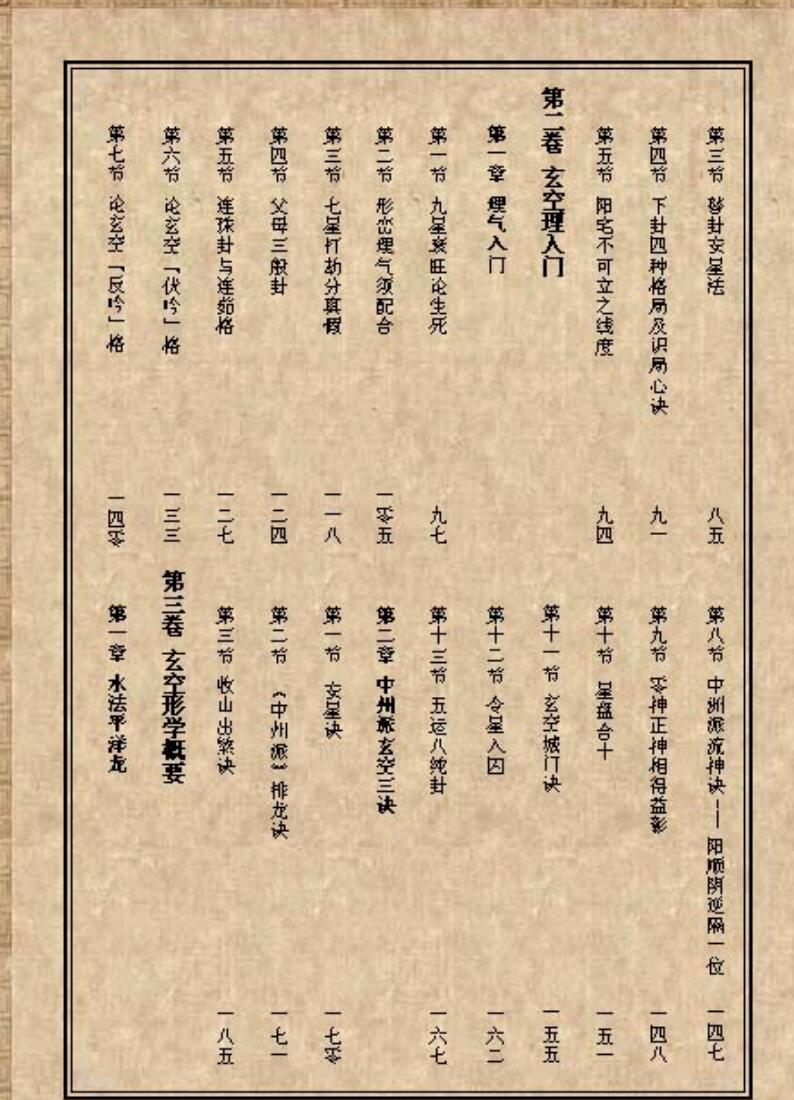 第三节 替卦安星法 八五
第四节 下卦四种格局及识局心诀 九一
第五节 阳宅不可立之线度 九四
第二卷 玄空理入门
第一章 理气入门
第一节 九星衰旺论生死 九七
第二节 形峦理气须配合 一零五
第三节 七星打劫分真假 一一八
第四节 父母三般卦 一二四
第五节 连珠卦与连茹格 一二七
第六节 论玄空「伏吟」格 一三三
第七节 论玄空「反吟」格 一四零
第八节 中洲派流神诀——阳顺阴逆隔一位 一四七
第九节 零神正神相得益彰 一四八
第十节 星盘合十 一五一
第十一节 玄空城门诀 一五五
第十二节 令星入囚 一六二
第十三节 五运八纯卦 一六七
第二章 中州派玄空三诀
第一节 安星诀 一七零
第二节 《中州派》排龙诀 一七一
第三节 收山出煞诀 一八五
第三卷 玄空形学概要
第一章 水法平洋龙